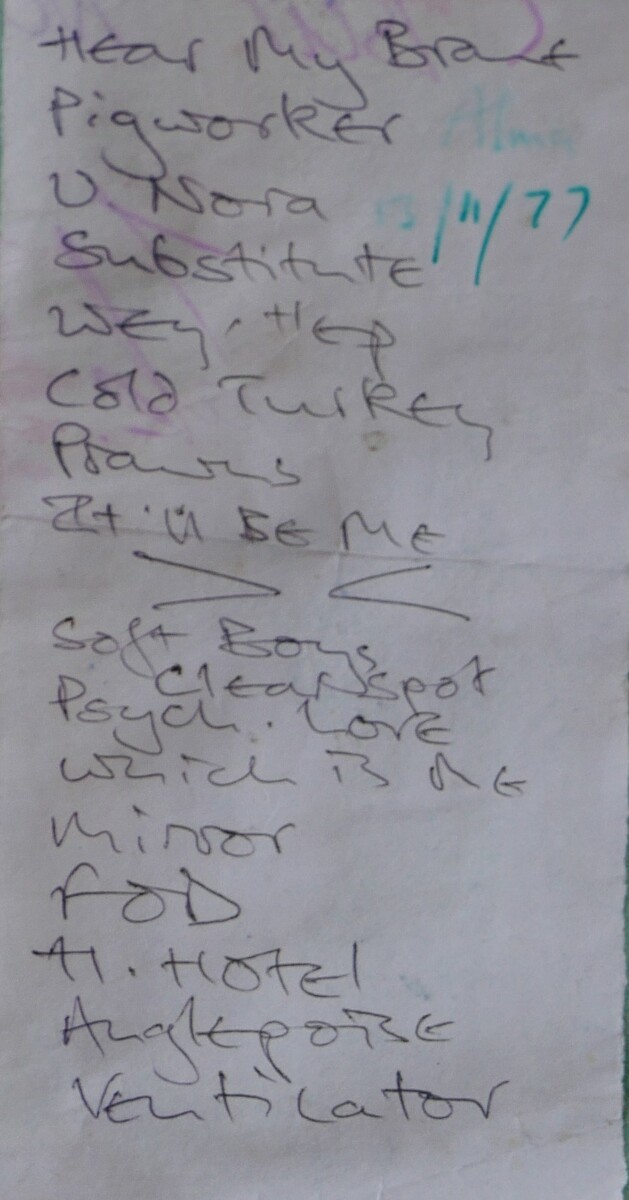 Hear My Brane
Pigworker
Alma
U. Nora
13/11/77
Substitute
Wey. Hep
Cold Turkey
Prawns
It'll BE ME
> <
Soft Boys
Clear Spot
Psych. Love
Which is Me
Mirror
FOD
H. Hotel
Anglepoise
Ventilator